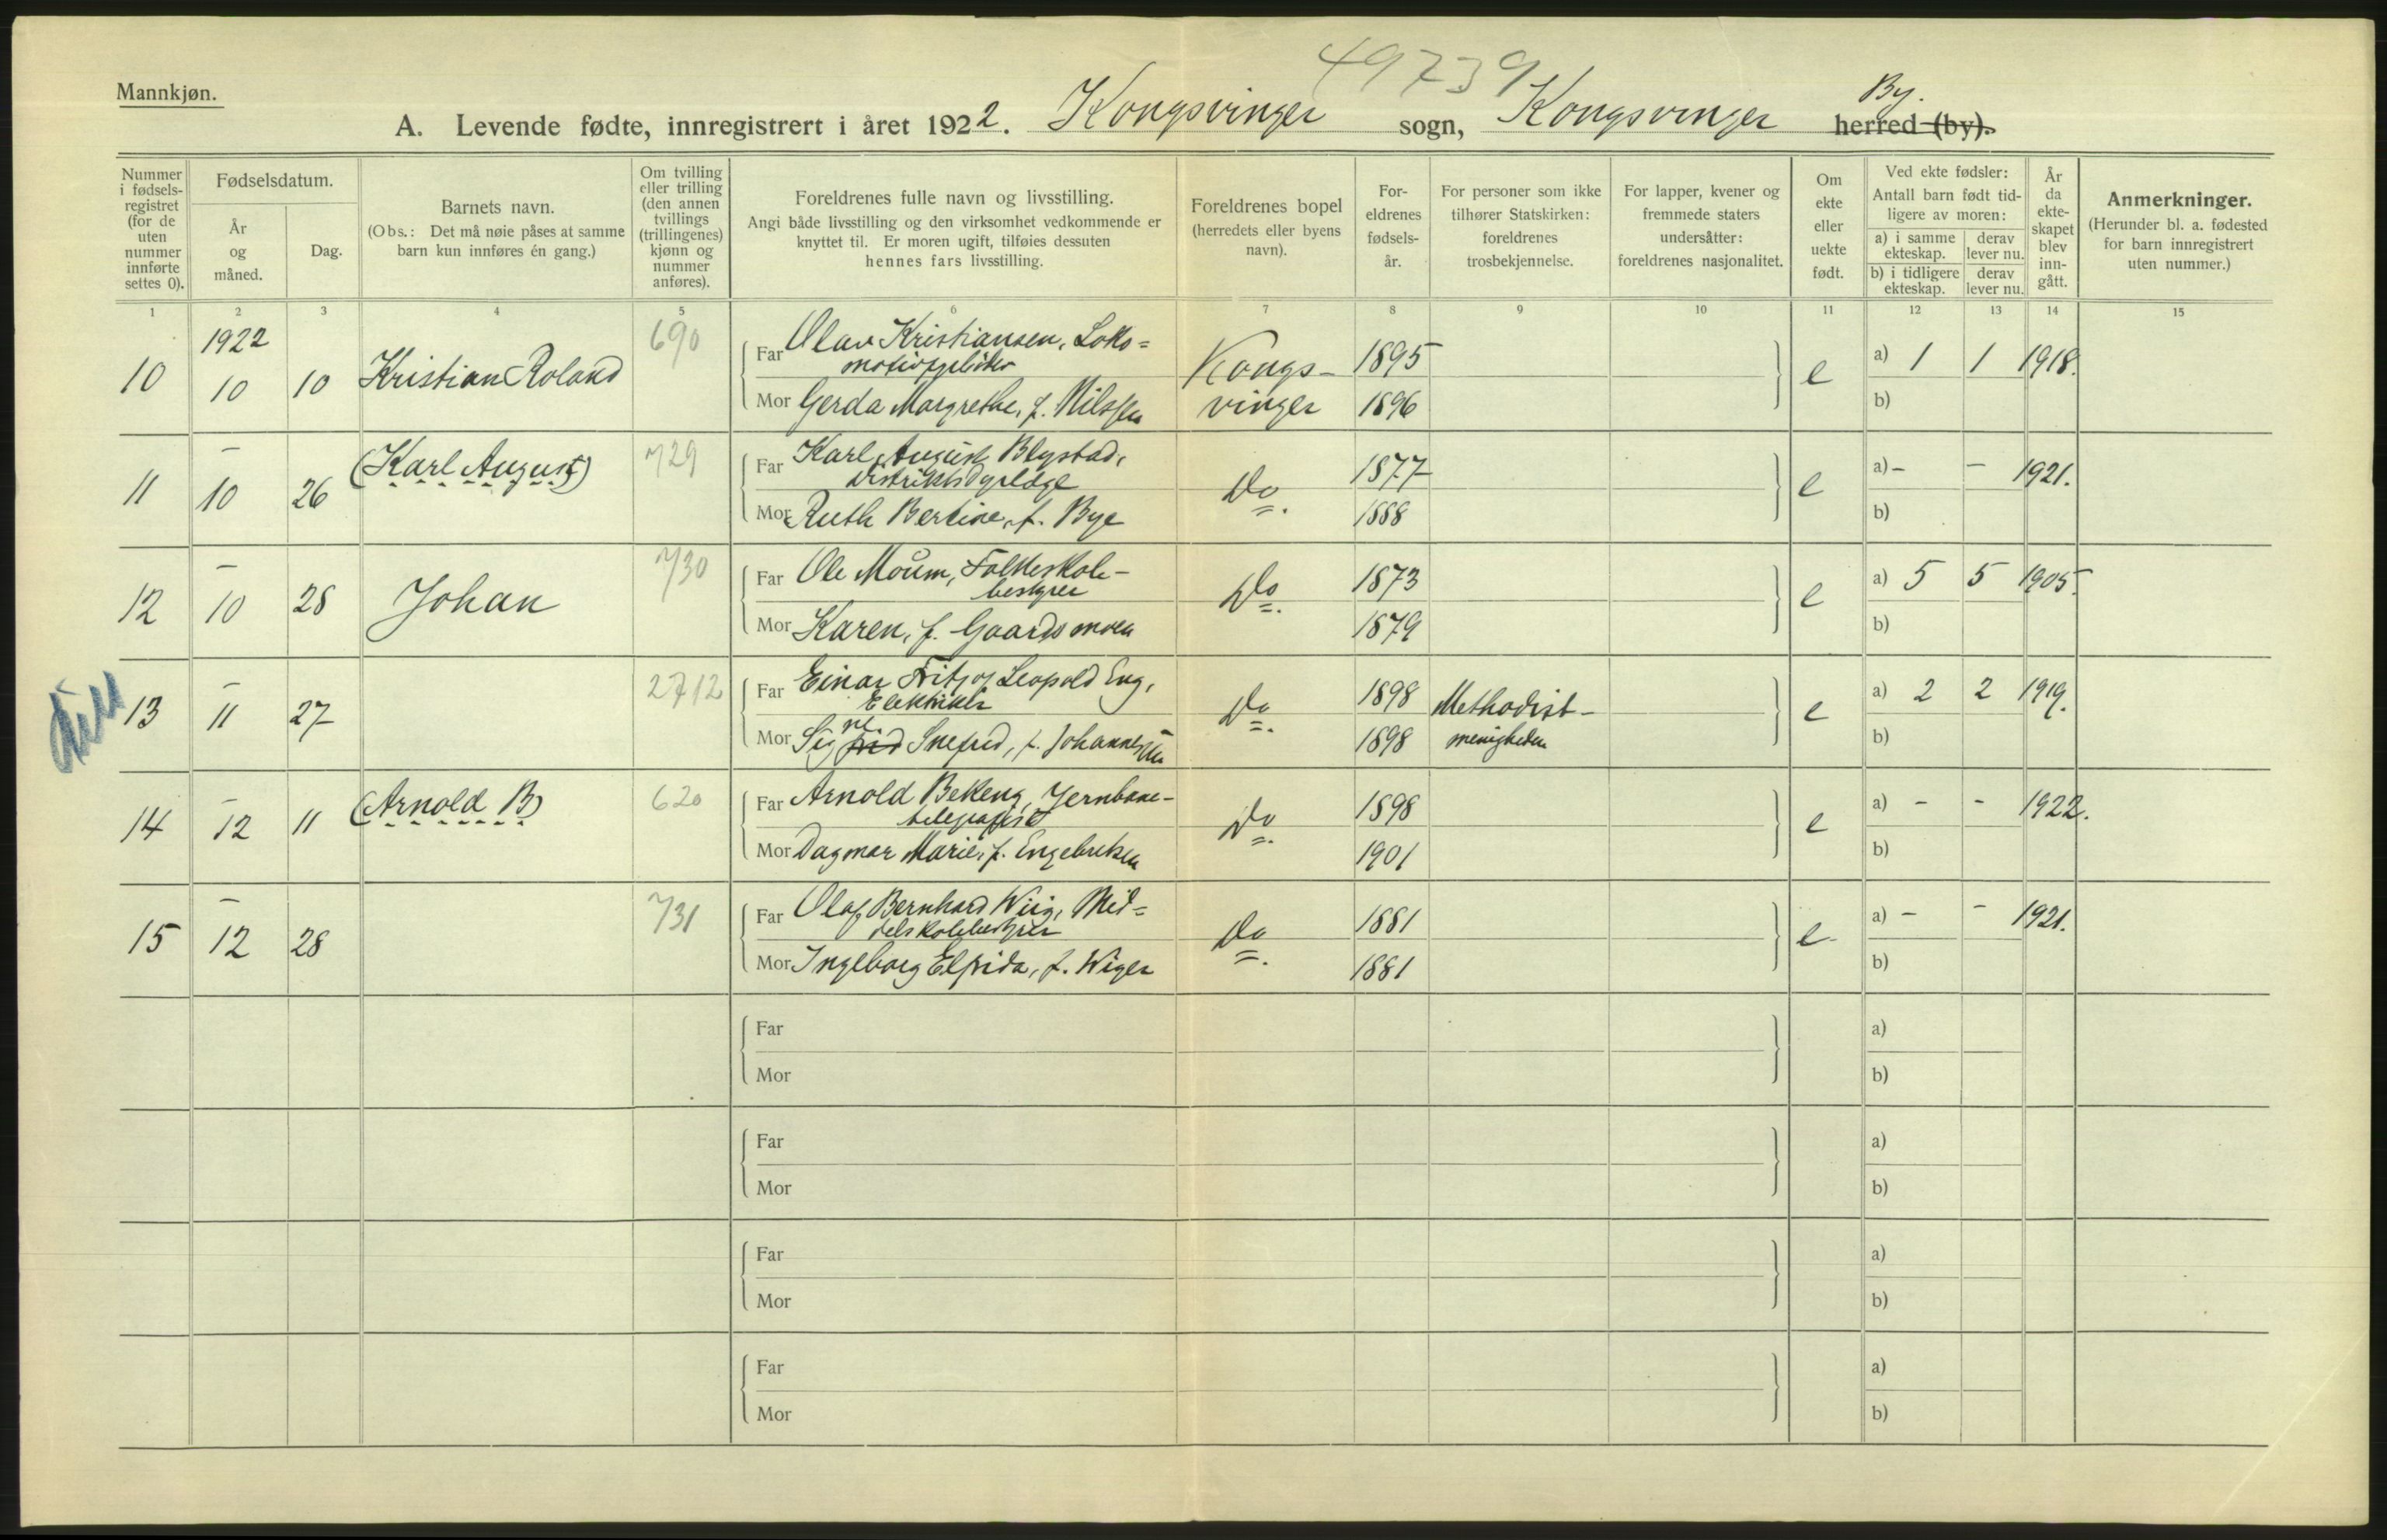 49739
Mannkjøn.
By.
A. Levende fødte, innregistrert i året 1922. Kongsvinger sogn, Kongsvinger herred (by).
Nummer i fødsels-registret (for de uten nummer innførte settes 0).
Fødselsdatum.
År og måned.
Dag.
Barnets navn.
(Obs.: Det må nøie påses at samme barn kun innføres én gang.)
Om tvilling eller trilling (den annen tvillings (trillingenes) kjønn og nummer anføres).
Foreldrenes fulle navn og livsstilling.
Angi både livsstilling og den virksomhet vedkommende er knyttet til. Er moren ugift, tilføies dessuten hennes fars livsstilling.
Foreldrenes bopel (herredets eller byens navn).
For-eldrenes fødsels-år.
For personer som ikke tilhører Statskirken: foreldrenes trosbekjennelse.
For lapper, kvener og fremmede staters undersåtter: foreldrenes nasjonalitet.
Om ekte eller uekte født.
Ved ekte fødsler:
Antall barn født tid-ligere av moren:
a) i samme ekteskap.
derav lever nu.
b) i tidligere ekteskap.
derav lever nu.
År da ekte-skapet blev inn-gått.
Anmerkninger.
(Herunder bl. a. fødested for barn innregistrert uten nummer.)
1 2 3 4 5 6 7 8 9 10 11 12 13 14 15
1922 690 Far Olav Kristiansen, Loko=
10 10 10 Kristian Roland Kongs- 1895 e a) 1 1 1918.
Mor Gerda Margrethe, f. Nilssen vinger 1896 b)
– (Karl August) 729 Far Karl August Blystad,
Distriktsdyrlæge 1877 a) – – 1921.
11 10 26 Do e
Mor Ruth Bertine, f. Bye 1888 b)
– 730 Far Ole Moum, Folkeskole-
bestyrer 1873 a) 5 5 1905.
12 10 28 Johan Do e
Mor Karen, f. Gaardsmoen 1879 b)
– 2712 Far Einar Fritjof Leopold Eng,
Elektriker 1898 Methodist- a) 2 2 1919.
13 11 27 Do e
Mor Signe Snefrid, f. Johannessen 1898 menigheden b)
– (Arnold B) 620 Far Arnold Bekeng, Jernbane-
telegrafist 1898 a) – – 1922.
14 12 11 Do e
Mor Dagmar Marie, f. Engebretsen 1901 b)
– 731 Far Olaf Bernhard Wiig, Mid=
delskolebestyrer 1881 a) – – 1921.
15 12 28 Do e
Mor Ingeborg Elfrida, f. Wiger 1881 b)
Far a)
Mor b)
Far a)
Mor b)
Far a)
Mor b)
Far a)
Mor b)